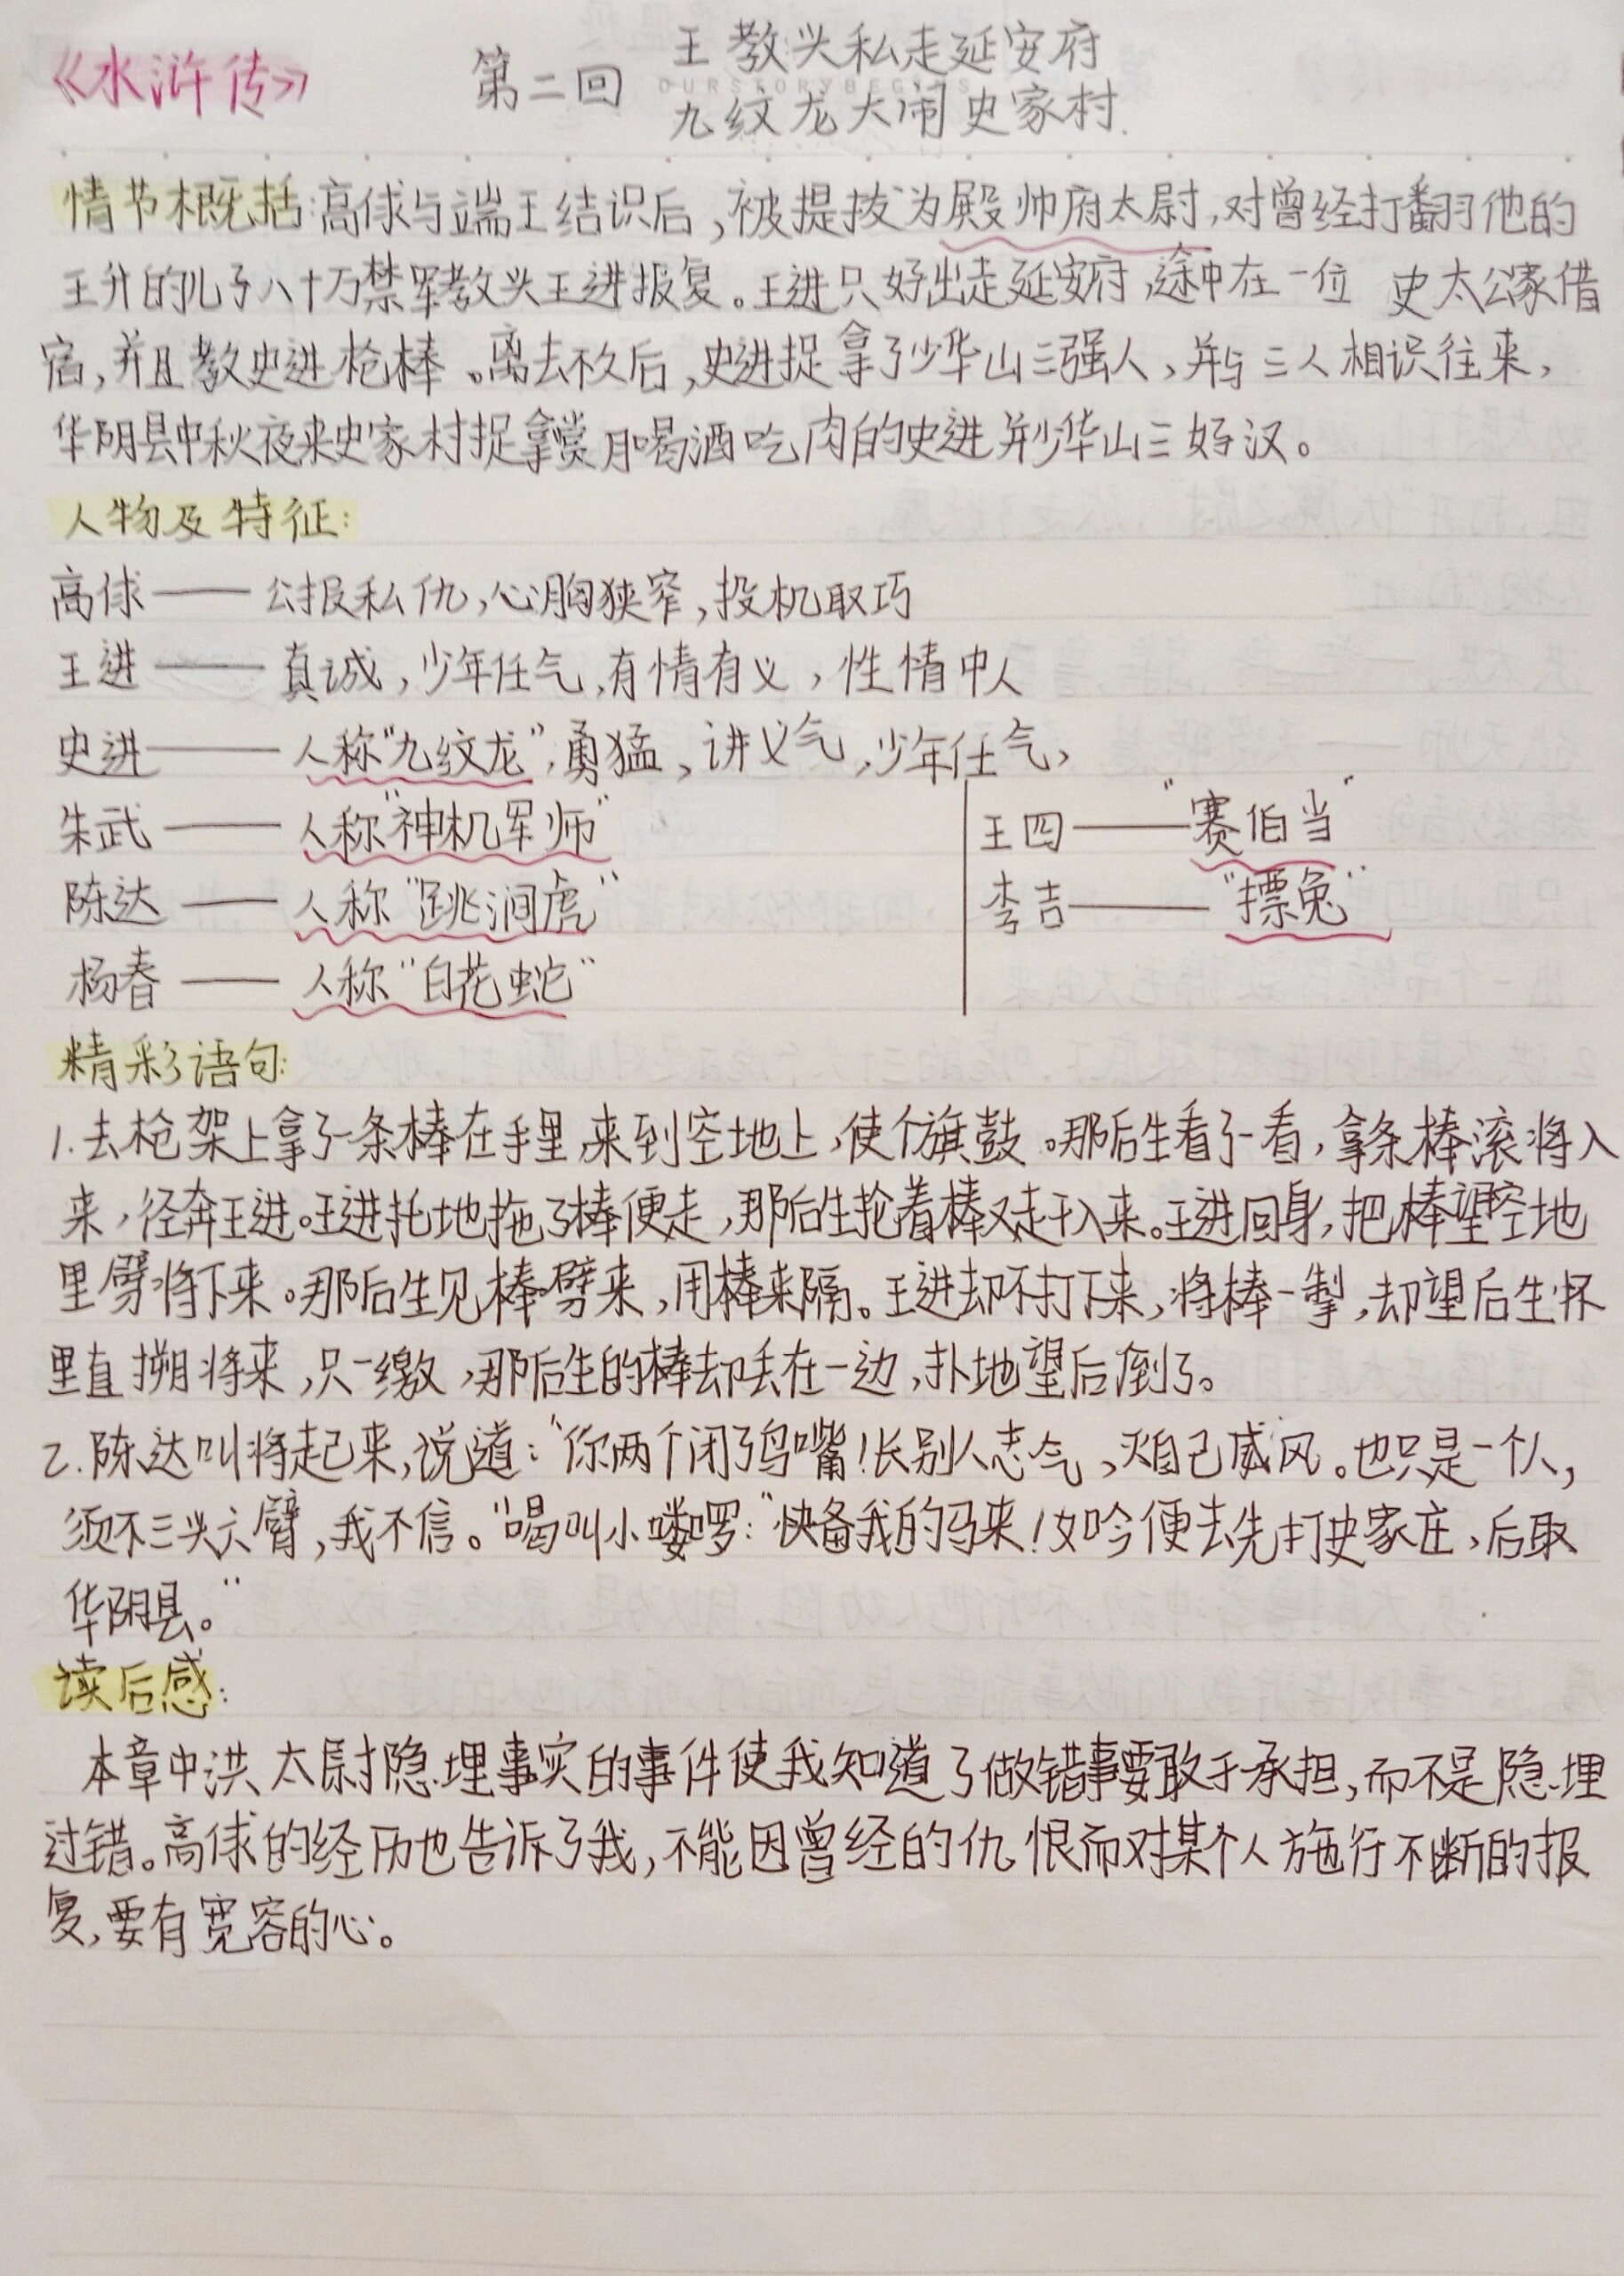 《水浒传》 第二回 王教头私走延安府
OURSTORYBEGINS
九纹龙大闹史家村.
情节概括:高俅与端王结识后,被提拔为殿帅府太尉,对曾经打翻他的
王升的儿子八十万禁军教头王进报复。王进只好出走延安府,途中在一位 史太公家借
宿,并且教史进枪棒。离去不久后,史进捉拿了少华山三强人,并与三人相识往来,
华阴县中秋夜来史家村捉拿赏月喝酒吃肉的史进并少华山三好汉。
人物及特征:
高俅——公报私仇,心胸狭窄,投机取巧
王进——真诚,少年任气,有情有义,性情中人
史进——人称“九纹龙”,勇猛、讲义气,少年任气、
朱武——人称“神机军师”
陈达——人称“跳涧虎”
杨春——人称“白花蛇”
王四——“赛伯当”
李吉——“摽兔”
精彩语句:
1.去枪架上拿了一条棒在手里,来到空地上,使个旗鼓。那后生看了一看,拿条棒滚将入
来,径奔王进。王进托地拖了棒便走,那后生抡着棒又走干入来。王进回身,把棒望空地
里劈将下来。那后生见棒劈来,用棒来隔。王进却不打下来,将棒一掣,却望后生怀
里直搠将来,只一缴,那后生的棒却丢在一边,扑地望后倒了。
2.陈达叫将起来,说道:“你两个闭了鸟嘴!长别人志气、灭自己威风。也只是一个人,
须不三头六臂,我不信。”喝叫小喽啰:“快备我的马来!如吟便去先打史家庄,后取
华阴县。”
读后感:
本章中洪太尉隐埋事实的事件使我知道了做错事要敢于承担,而不是隐埋
过错。高俅的经历也告诉了我,不能因曾经的仇恨而对某个人施行不断的报
复,要有宽容的心。